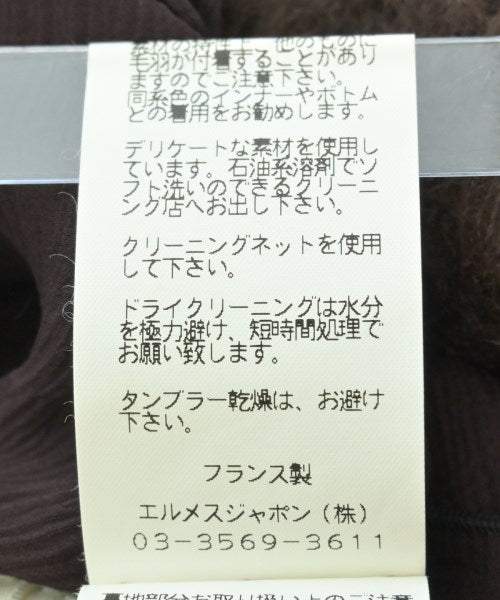 素材の特性上、他のものに
毛羽が付着することがあり
ますのでご注意下さい。
同系色のインナーやボトム
との着用をお勧めします。
デリケートな素材を使用し
ています。石油系溶剤でソ
フト洗いのできるクリーニ
ング店へお出し下さい。
クリーニングネットを使用
して下さい。
ドライクリーニングは水分
を極力避け、短時間処理で
お願い致します。
タンブラー乾燥は、お避け
下さい。
フランス製
エルメスジャポン(株)
03-3569-3611
地部分お取り扱い上のご注意